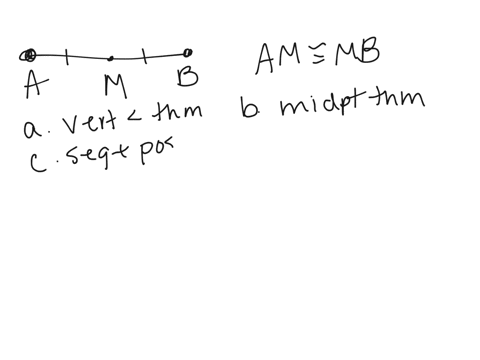 A M B
AM ≅ MB
a. Vert < thm
b. midpt thm
c. seg + pos